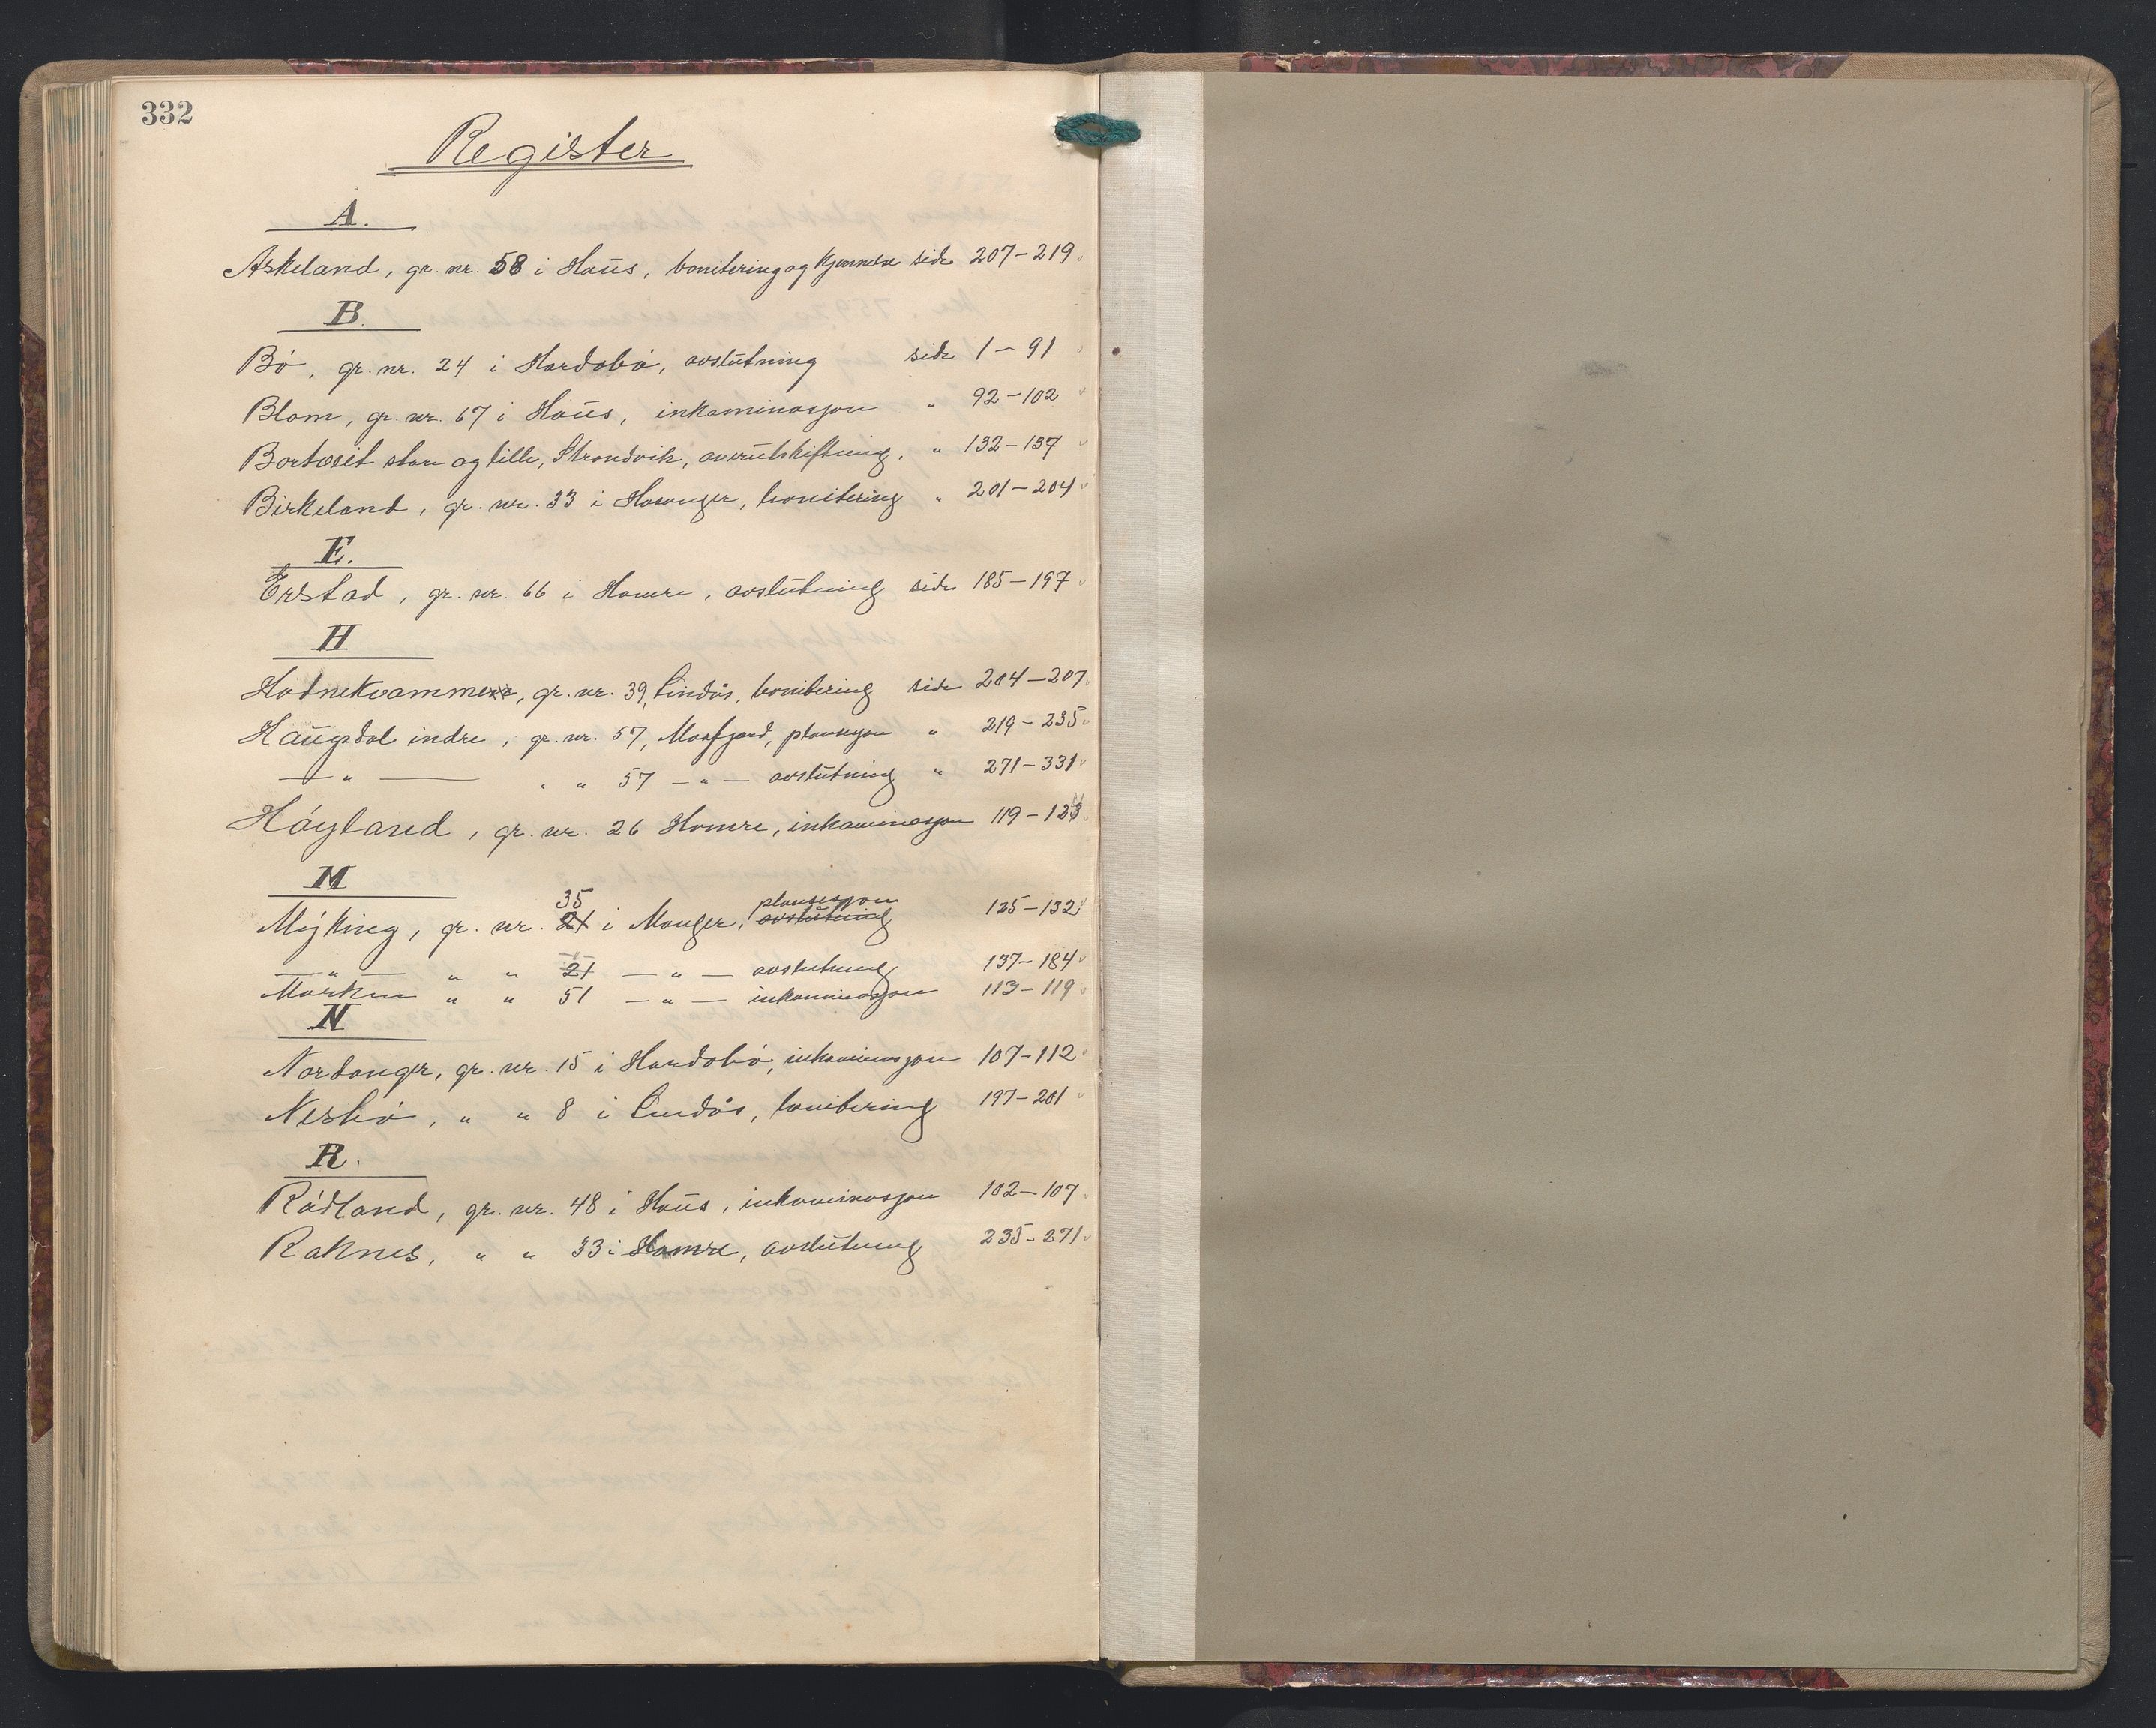 332
Register
A.
Askeland, gr. nr. 58 i Haus, bonitering og kjennelse side 207-219
B.
Bø, gr. nr. 24 i Hordabø, avslutning side 1-91
Blom, gr. nr. 67 i Haus, inkaminasjon " 92-102
Bortveit store og lille, Strandvik, overutskiftning, " 132-137
Birkeland, gr. nr. 33 i Hosanger, bonitering " 201-204
E.
Erstad, gr. nr. 66 i Hamre, avslutning side 185-197
H
Hodnekvamme, gr. nr. 39, Lindås, bonitering side 204-207
Haugsdal indre, gr. nr. 57, Masfjord, plansesjon " 219-235
—"— " " 57 —"— avslutning " 271-331
Høyland, gr. nr. 26 Hamre, inkaminasjon 119-123
M
35 plansesjon
Mjøking, gr. nr. 21 i Manger, avslutning 125-132
—"— " " 21 —"— avslutning 137-184
Marken " " 51 —"— inkaminasjon 113-119
N
Nordanger, gr. nr. 15 i Hordabø, inkaminasjon 107-112
Nesbø, " " 8 i Lindås, bonitering 197-201
R.
Rødland, gr. nr. 48 i Haus, inkaminasjon 102-107
Raknes, " " 33 i Hamre, avslutning 235-271